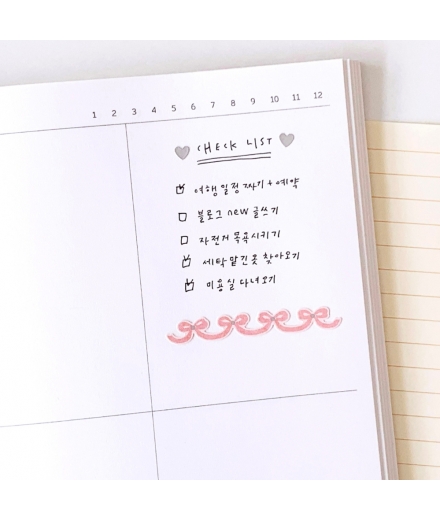 1 2 3 4 5 6 7 8 9 10 11 12
CHECK LIST
여행 일정 짜기 + 예약
블로그 new 글쓰기
자전거 목욕시키기
세탁 맡긴 옷 찾아오기
미용실 다녀오기